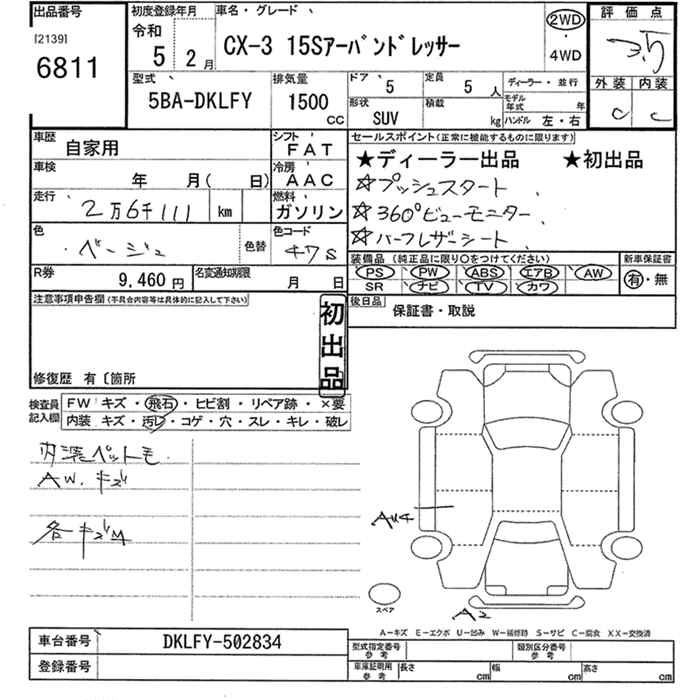 出品番号
[2139]
6811
初度登録年月
令和
5 2月
車名・グレード
CX-3 15Sアーバンドレッサー
2WD
・
4WD
評価点
3.5
外装 内装
C C
型式
5BA-DKLFY
排気量
1500 cc
ドア 5
定員 5 人
形状 SUV
積載 kg
ディーラー・並行
モデル年式 年
ハンドル 左・右
車歴 自家用
シフト FAT
車検 年 月( 日)
冷房 AAC
走行 2万6千111 km
燃料 ガソリン
色 ベージュ 色替
色コード 47S
R券 9,460 円
名変通知期限 月 日
セールスポイント(正常に機能するものに限ります)
★ディーラー出品 ★初出品
☆プッシュスタート
☆360°ビューモニター
☆ハーフレザーシート
装備品(純正品に限り○をつけてください)
PS PW ABS エアB AW
SR ナビ TV カワ
新車保証書
有・無
後日品 保証書・取説
注意事項申告欄(不具合内容等は具体的に記入して下さい)
初出品
修復歴 有〔箇所
検査員記入欄
FW キズ・飛石・ヒビ割・リペア跡・×要
内装 キズ・汚レ・コゲ・穴・スレ・キレ・破レ
内装ペットモ
AW.キズ
各キズM
AU4
スペア
A2
A-キズ E-エクボ U-凹み W-補修跡 S-サビ C-腐食 XX-交換済
車台番号 DKLFY-502834
登録番号
型式指定番号 参考
類別区分番号 参考
車庫証明用 参考
長さ cm
幅 cm
高さ cm